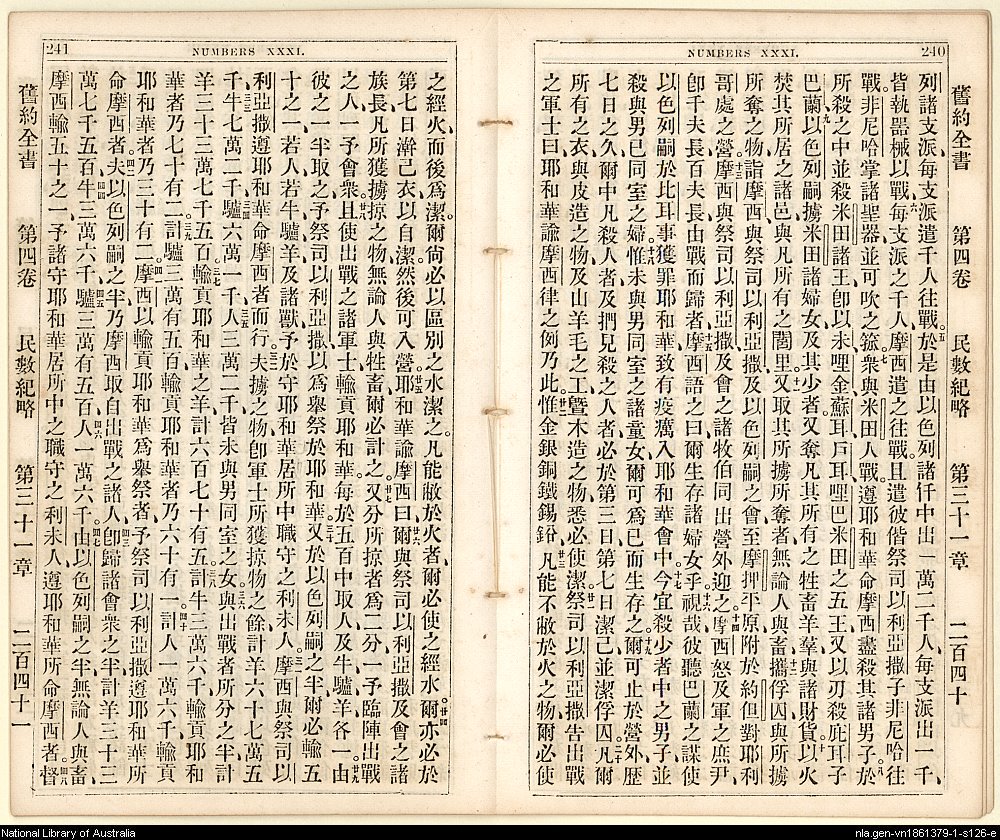 NUMBERS XXXI.
240
舊約全書 第四卷 民數紀略 第三十一章 二百四十
列諸支派、每支派遣千人往戰。五於是由以色列諸仟中出一萬二千人、每支派出一千、
皆執器械以戰。六每支派之千人、摩西遣之往戰、且遣彼偕祭司以利亞撒子非尼哈往
戰、非尼哈掌諸聖器、並可吹之箛。七衆與米田人戰、遵耶和華命摩西、盡殺其諸男子。八於
所殺之中、並殺米田諸王、卽以未哩金蘇耳戶耳哩巴米田之五王、又以刃殺庇耳子
巴蘭。九以色列嗣擄米田諸婦女、及其少者、又奪凡其所有之牲畜羊羣與諸財貨。十以火
焚其所居之諸邑、與凡所有之閭里。十一又取其所擄所奪者、無論人與畜。十二攜俘囚與所擄
所奪之物、詣摩西與祭司以利亞撒及以色列嗣之會、至摩押平原附於約但、對耶利
哥處之營。十三摩西與祭司以利亞撒及會之諸牧伯、同出營外迎之。十四摩西怒及軍之庶尹
卽千夫長百夫長由戰而歸者。十五摩西語之曰、爾生存諸婦女乎。十六視哉、彼聽巴蘭之謀、使
以色列嗣於比耳事獲罪耶和華、致有疫癘入耶和華會中。十七今宜殺少者中之男子、並
殺與男已同室之婦。十八惟未與男同室之諸童女、爾可爲己而生存之。十九爾可止於營外、歷
七日之久、爾中凡殺人者、及捫見殺之人者、必於第三日第七日潔己並潔俘囚。二十凡爾
所有之衣與皮造之物、及山羊毛之工、曁木造之物、悉必使潔。廿一祭司以利亞撒告出戰
之軍士曰、耶和華諭摩西律之例乃此。廿二惟金銀銅鐵錫鉛、廿三凡能不敝於火之物、爾必使
241
NUMBERS XXXI.
之經火、而後爲潔、爾尙必以區別之水潔之、凡能敝於火者、爾必使之經水。廿四爾亦必於
第七日澣己衣以自潔、然後可入營。廿五耶和華諭摩西曰、廿六爾與祭司以利亞撒及會之諸
族長、凡所獲擄掠之物、無論人與牲畜、爾必計之。廿七又分所掠者爲二分、一予臨陣出戰
之人、一予會衆。廿八且使出戰之諸軍士輸貢耶和華、每於五百中取人及牛驢羊各一。廿九由
彼之一半取之、予祭司以利亞撒、以爲舉祭於耶和華。三十又於以色列嗣之半、爾必輸五
十之一、若人若牛驢羊及諸獸、予於守耶和華居所中職守之利未人。三一摩西與祭司以
利亞撒遵耶和華命摩西者而行。三二夫擄之物、卽軍士所獲掠物之餘、計羊六十七萬五
千、三三牛七萬二千、三四驢六萬一千、三五人三萬二千、皆未與男同室之女。三六與出戰者所分之半、計
羊三十三萬七千五百、三七輸貢耶和華之羊、計六百七十有五。三八計牛三萬六千、輸貢耶和
華者乃七十有二。三九計驢三萬有五百、輸貢耶和華者乃六十有一。四十計人一萬六千、輸貢
耶和華者乃三十有二。四一摩西以輸貢耶和華爲舉祭者、予祭司以利亞撒、遵耶和華所
命摩西者。四二夫以色列嗣之半、乃摩西取自出戰之諸人、四三卽歸諸會衆之半、計羊三十三
萬七千五百、四四牛三萬六千、四五驢三萬有五百、四六人一萬六千。四七由以色列嗣之半、無論人與畜、
摩西輸五十之一、予諸守耶和華居所中之職守之利未人、遵耶和華所命摩西者。四八督
舊約全書 第四卷 民數紀略 第三十一章 二百四十一
National Library of Australia
nla.gen-vn1861379-1-s126-e